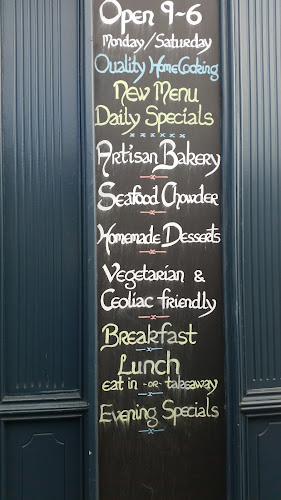 Open 9-6
Monday/Saturday
Quality Home Cooking
New Menu
Daily Specials
Artisan Bakery
Seafood Chowder
Homemade Desserts
Vegetarian &
Ceoliac friendly
Breakfast
Lunch
eat in -OR- takeaway
Evening Specials